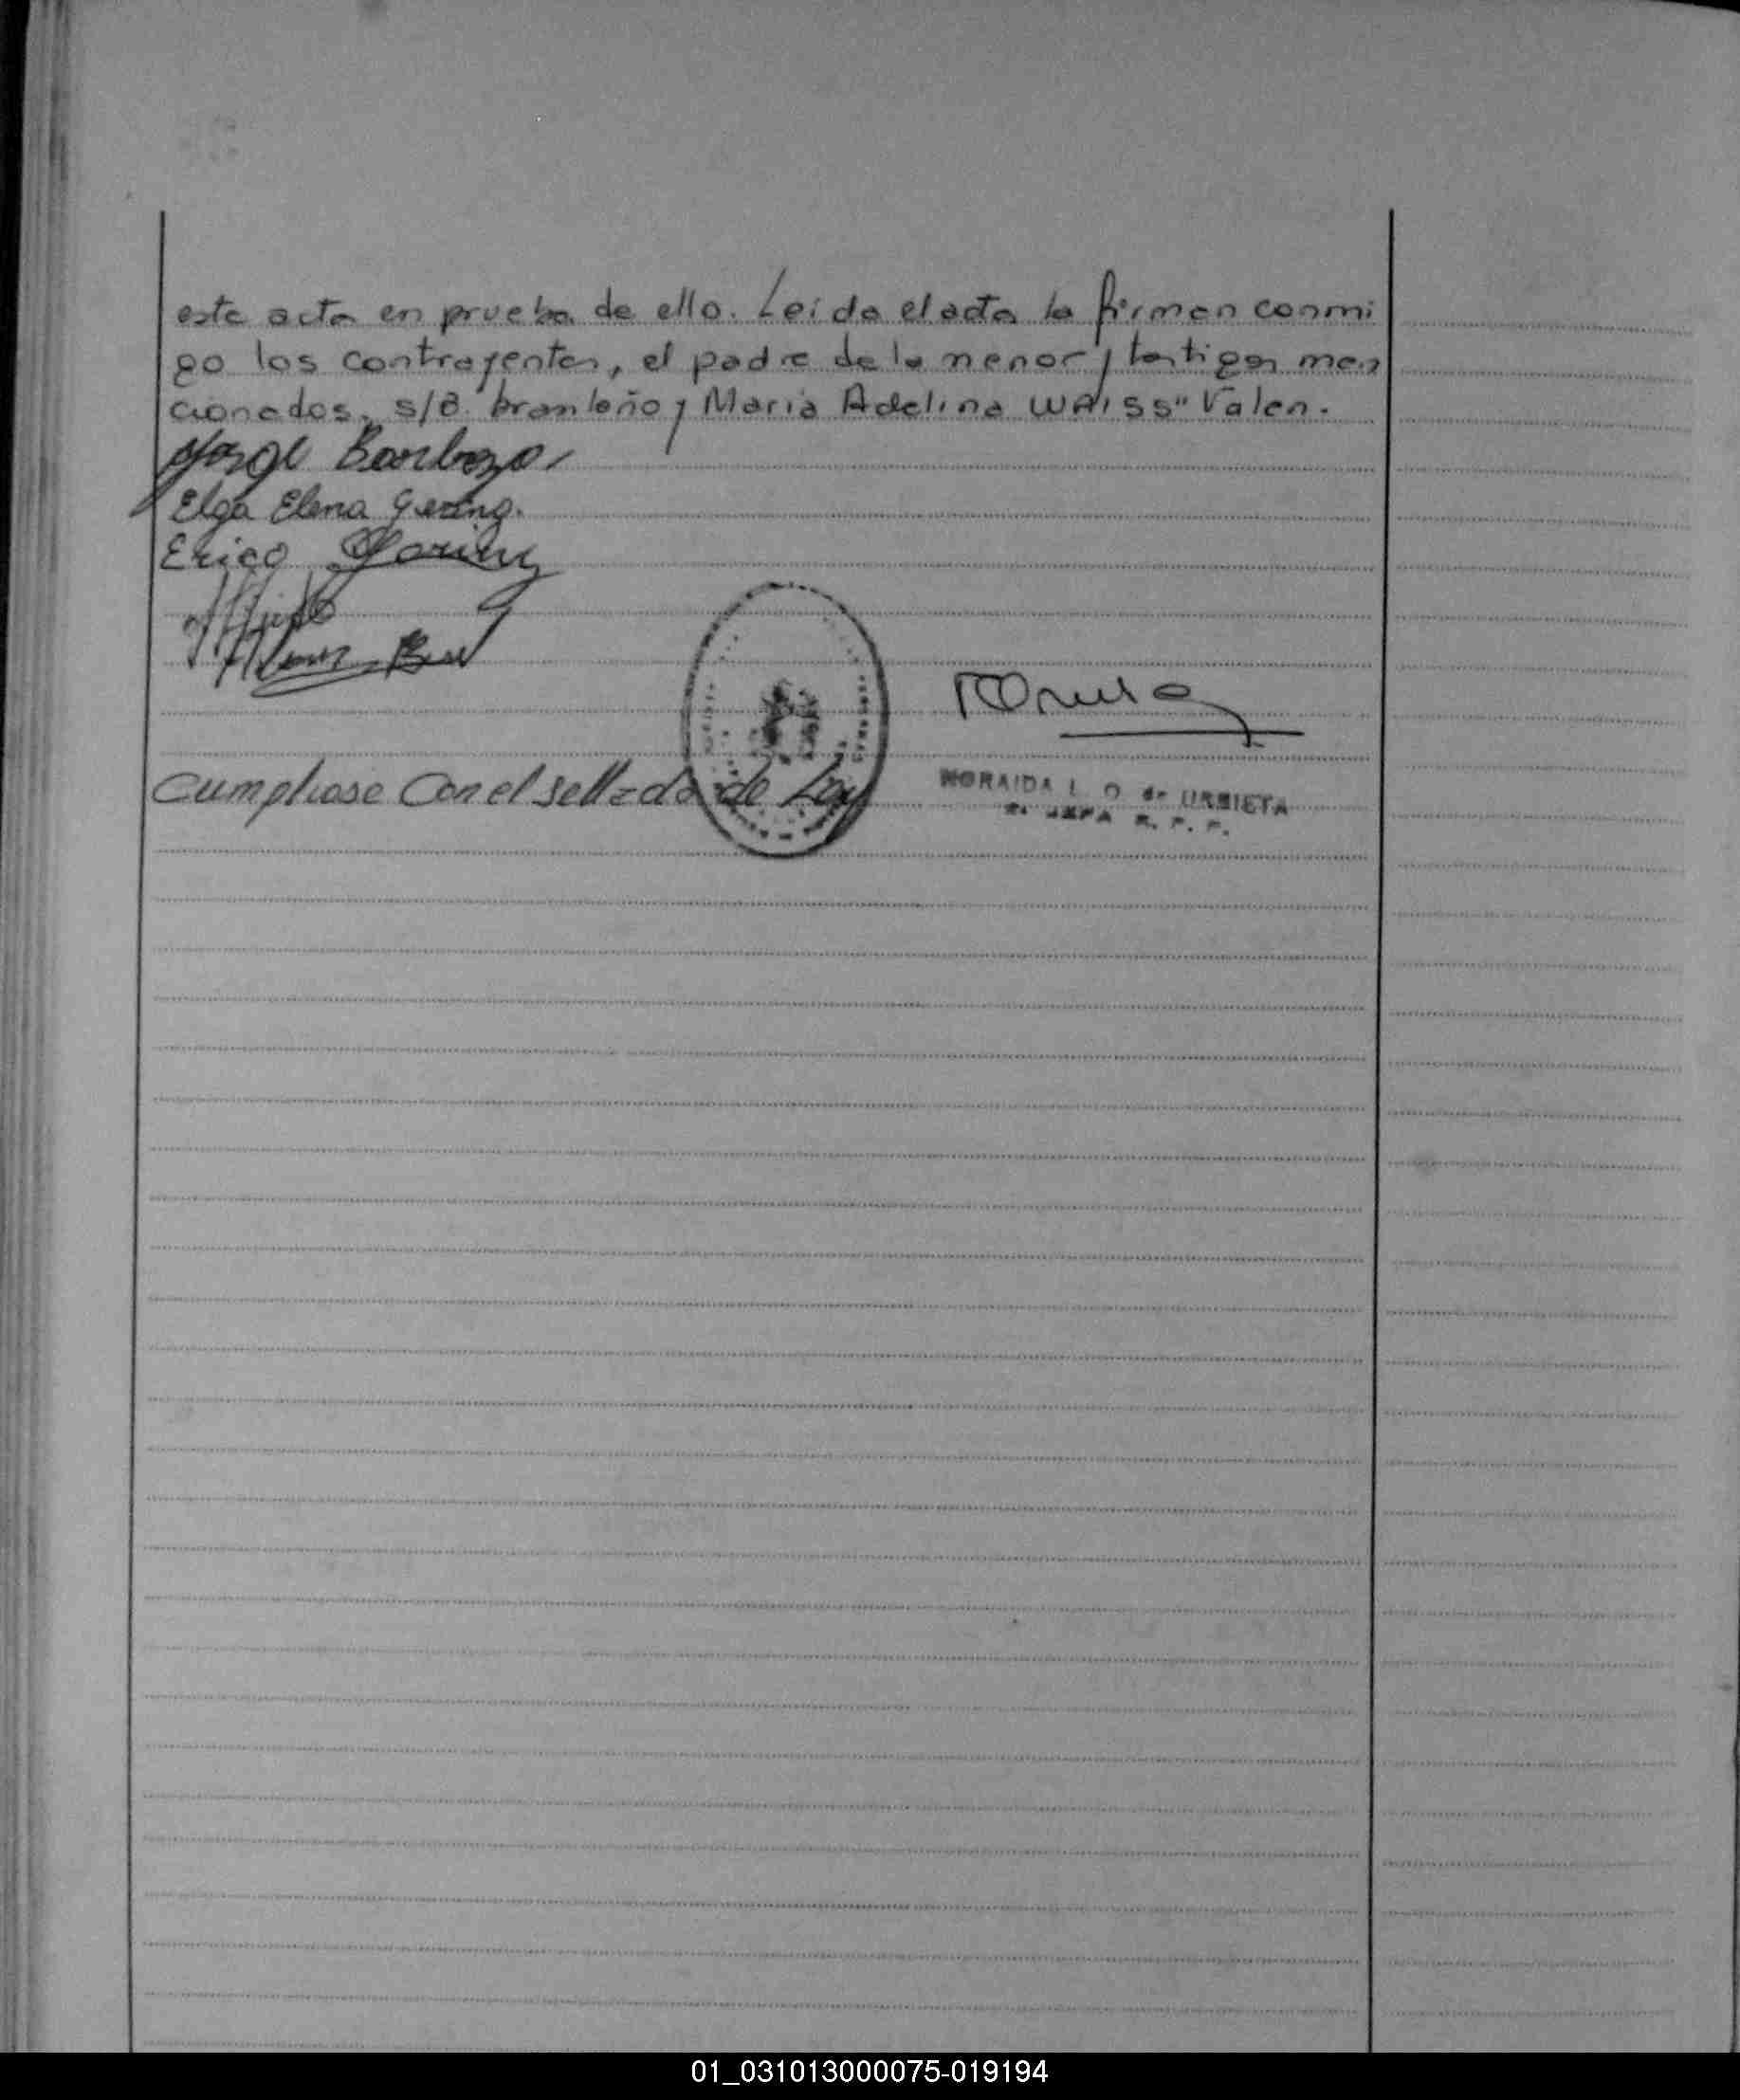 este acta en prueba de ello. Leida el acta la firman conmi
go los contrayentes, el padre de la menor y testigos men
cionados. s/B. brasileño y Maria Adelina WAISS" Valen.
Jorge Barboza
Elga Elena Gering.
Erico
Cumpliase Con el sellado de Ley
NORAIDA L. O. de URBIETA
R. P. P.
01_031013000075-019194